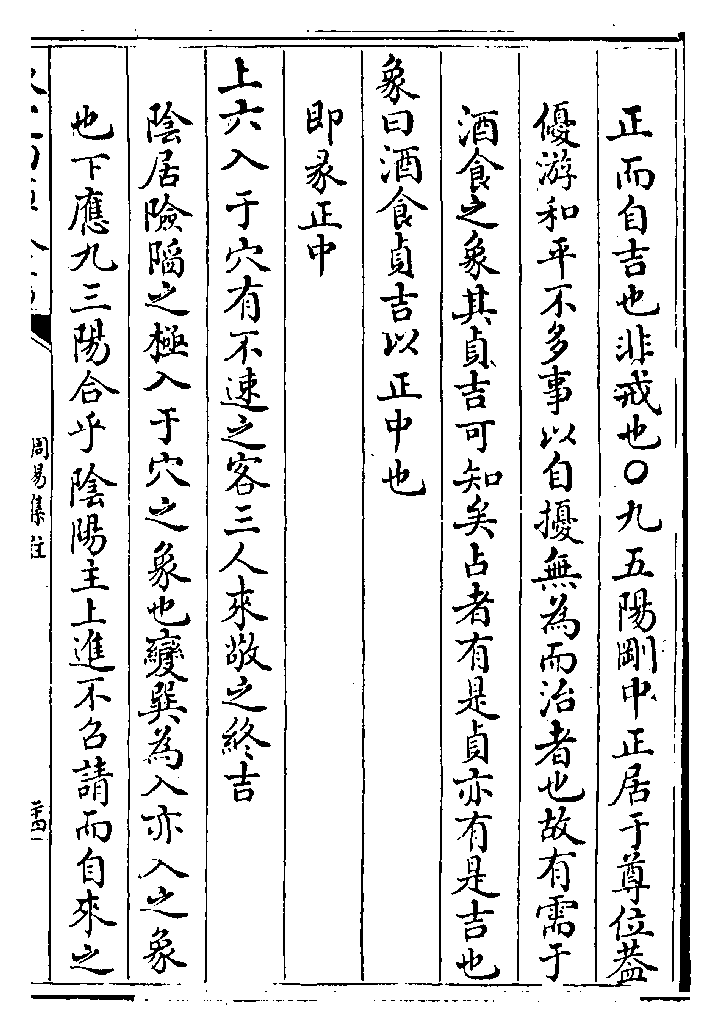 正而自吉也非戒也〇九五陽剛中正居于尊位葢
優游和平不多事以自擾無為而治者也故有需于
酒食之象其貞吉可知矣占者有是貞亦有是吉也
象曰酒食貞吉以正中也
即彖正中
上六入于穴有不速之客三人來敬之終吉
陰居險陷之極入于穴之象也變巽為入亦入之象
也下應九三陽合乎陰陽主上進不召請而自來之
周易集註